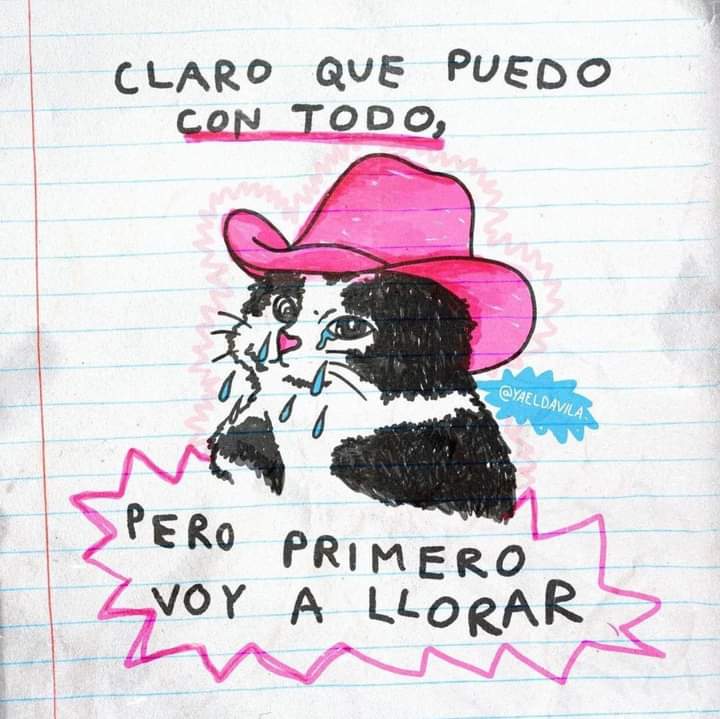 CLARO QUE PUEDO
CON TODO,
@YAELDAVILA
PERO PRIMERO
VOY A LLORAR